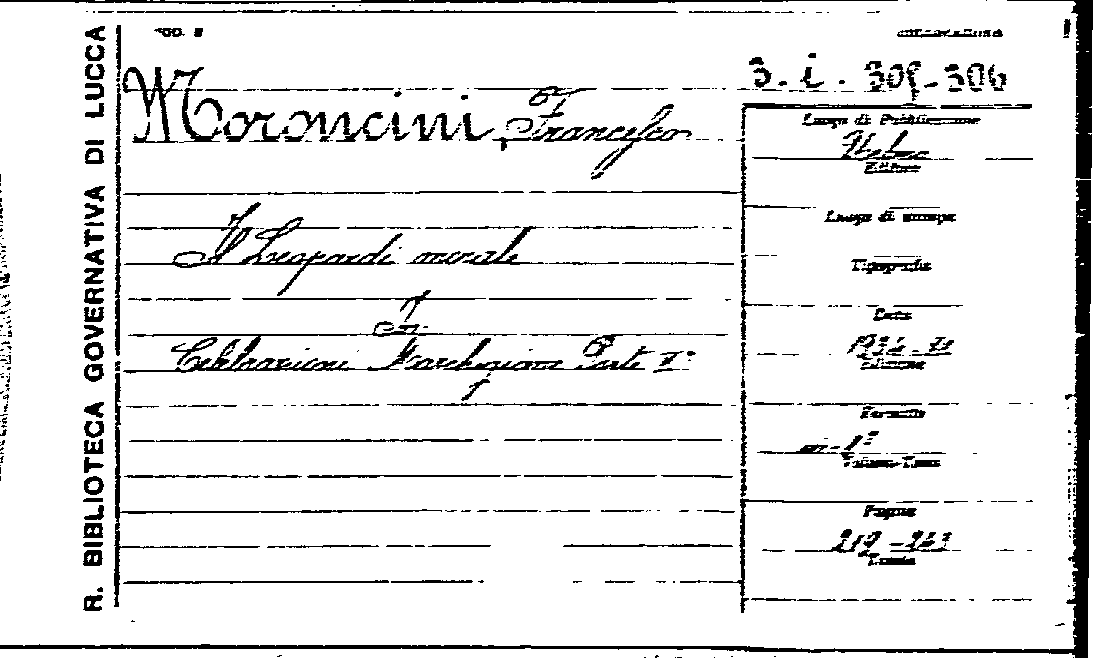 R. BIBLIOTECA GOVERNATIVA DI LUCCA
MOD. 2
COLLOCAZIONE
3. i. 305-306
Moroncini, Francesco
Il Leopardi morale
In
Celebrazioni Marchigiane Parte Iª
Luogo di Pubblicazione
Editore
Luogo di stampa
Tipografia
Data
Edizione
Formato
in-8º
Pagine
219-243